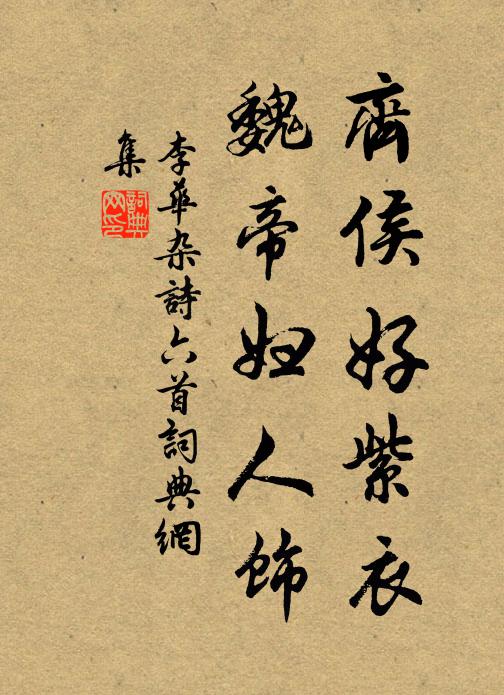 齊侯好紫衣
魏帝妇人飾
李華杂詩六首詞典網
集
詞典
网印